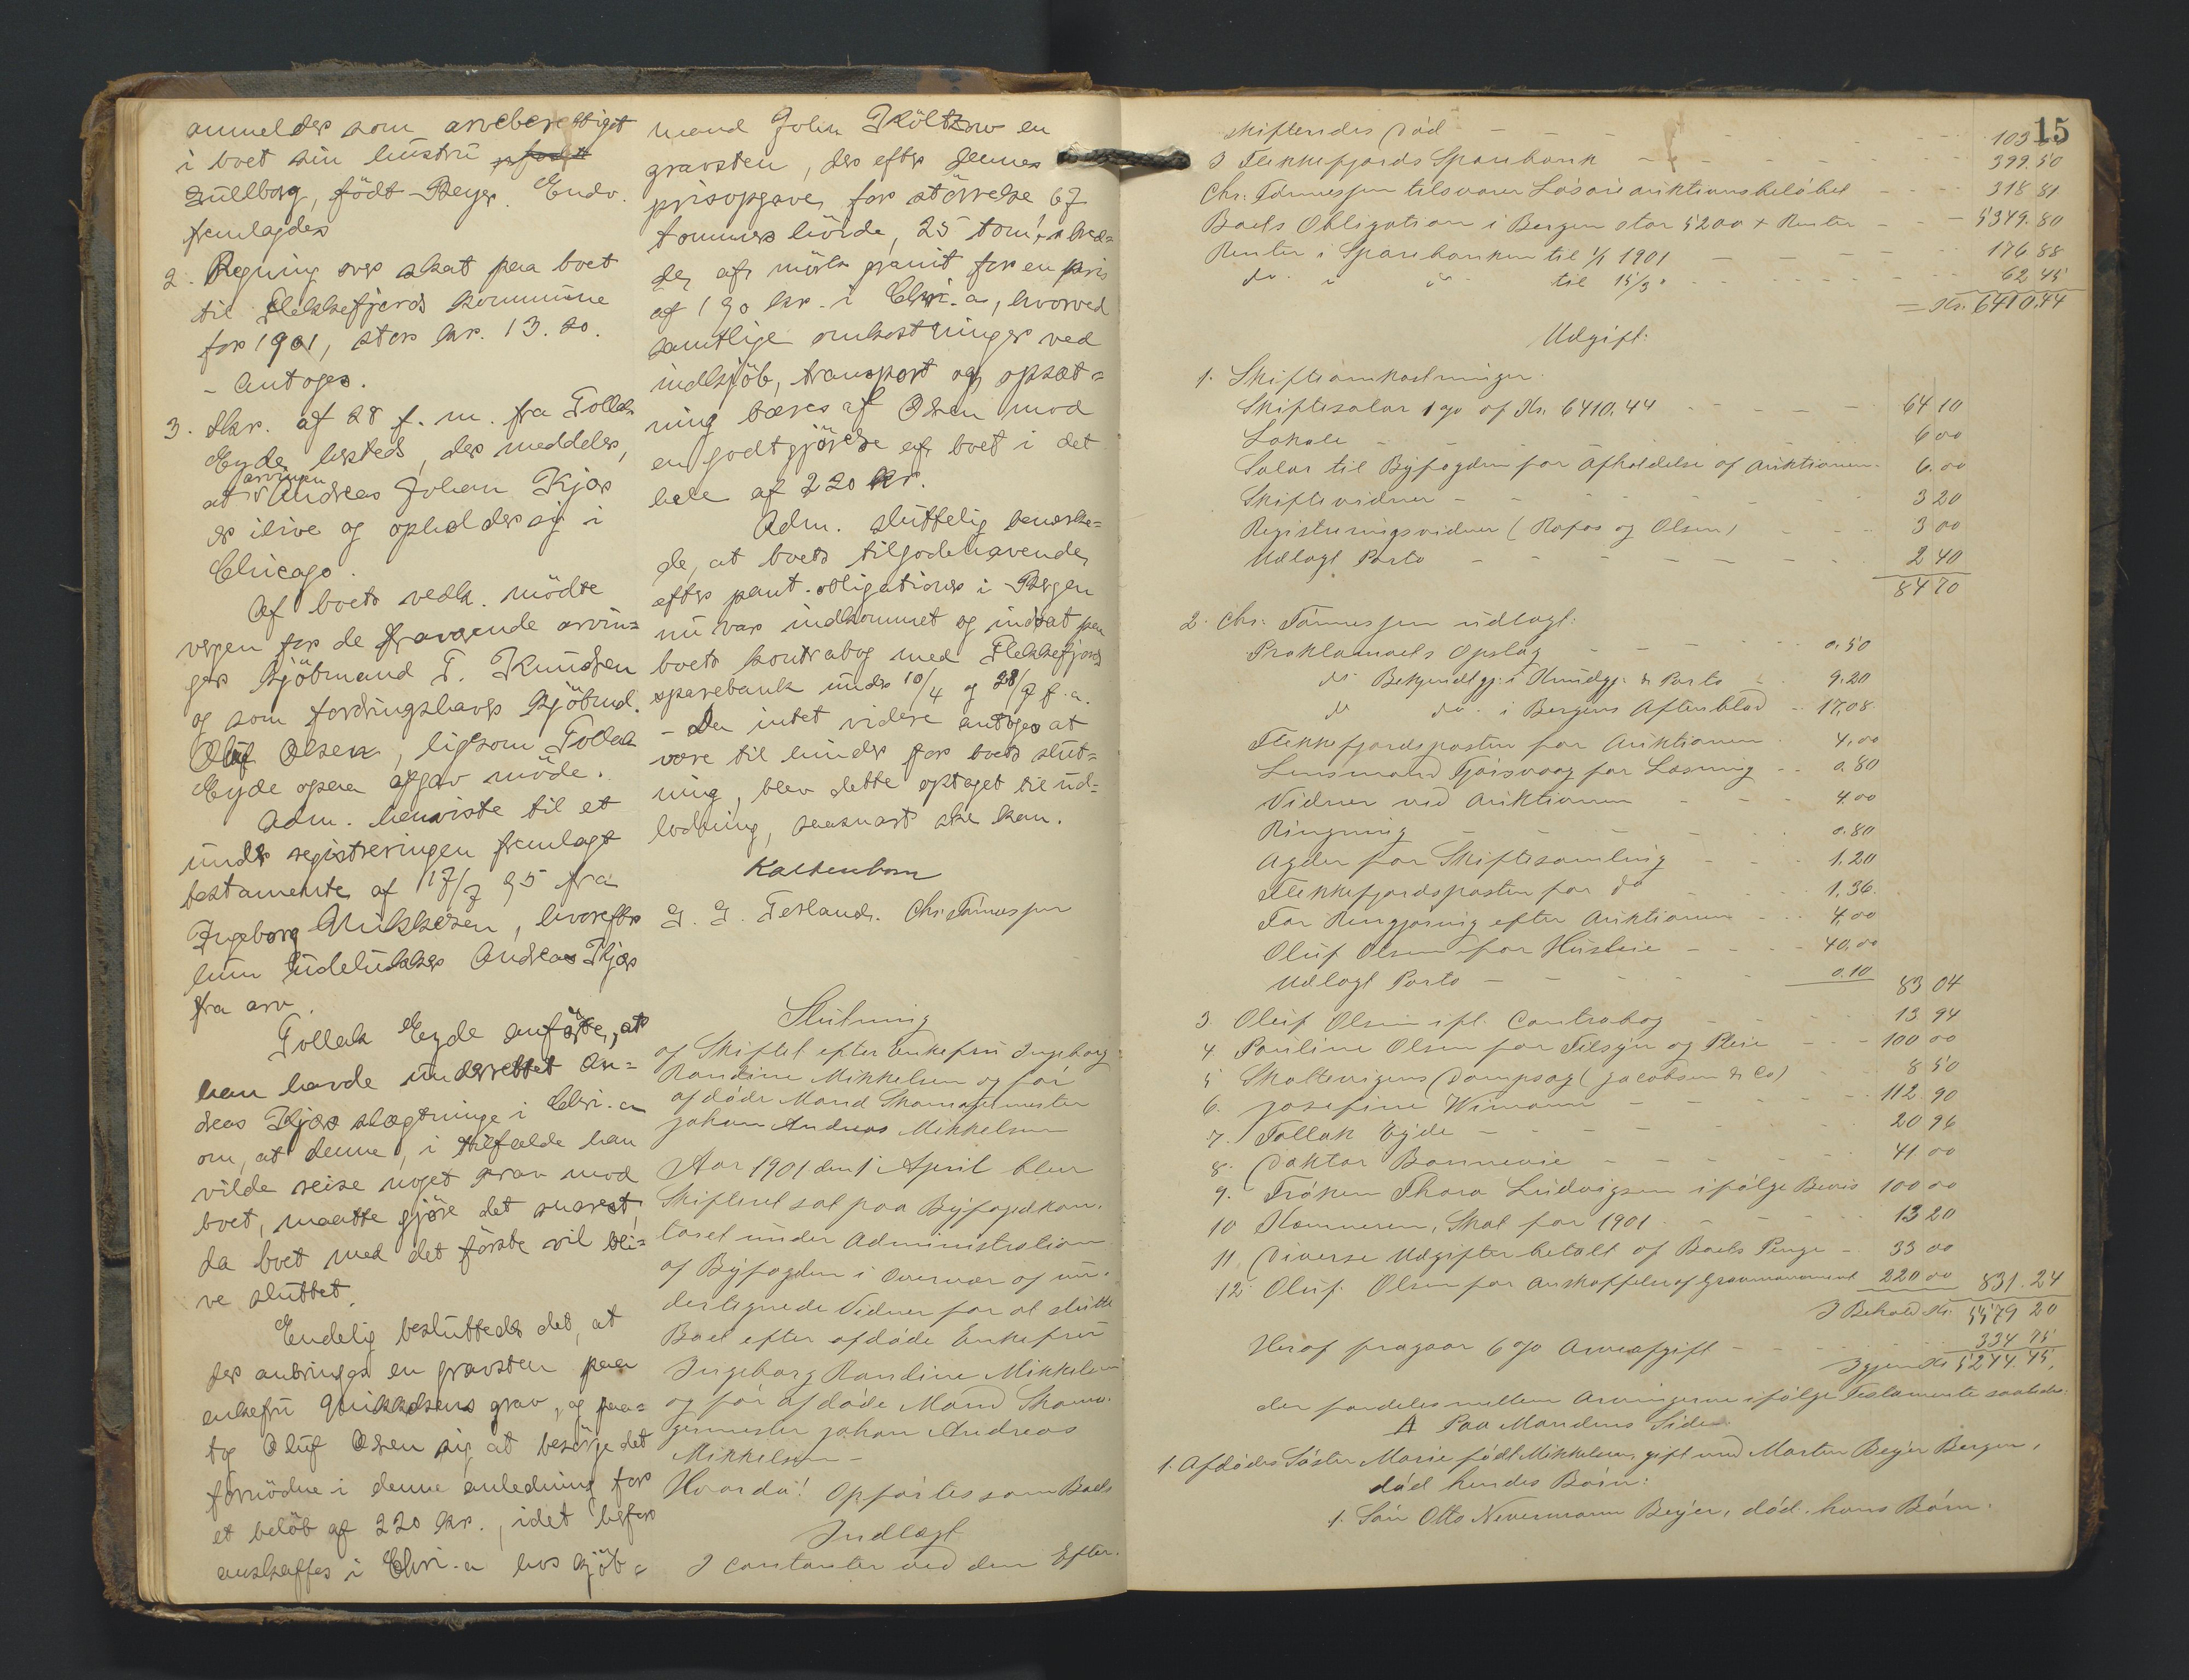 anmelder som arveberettiget
i boet sin hustru
Sullborg, født Beyer. Endv.
fremlagdes
2. Regning over skat paa boet
til Flekkefjords kommune
for 1901, stor kr. 13.20.
- Antoges.
3. Skr. af 28 f. m. fra Tollak
Eyde hersteds, der meddeler,
arvingen
at Andreas Johan Kjær
er ilive og opholder sig i
Chicago.
Af boets vedk. mødte
vergen for de fraværende arvin=
ger kjøbmand T. Knudsen
og som fordringshaver kjøbmd.
Oluf Olsen, ligesom Tollak
Eyde ogsaa afgav møde.
Adm. henviste til et
under registreringen fremlagt
testamente af 17/7 95 fra
Ingeborg Mikkelsen, hvorefter
hun udelukker Andreas Kjær
fra arv.
Tollak Eyde anførte, at
han havde underrettet An=
dreas Kjærs slægtninge i Chri.a
om, at denne, i tilfælde han
vilde reise noget krav mod
boet, maatte gjøre det snarest,
da boet med det første vil bli=
ve sluttet.
Endelig besluttedes det, at
der anbringes en gravsten paa
enkefru Mikkelsens grav, og paa=
tog Oluf Olsen sig at besørge det
fornødne i denne anledning for
et beløb af 220 kr., idet
anskaffes i Chri.a hos kjøb=
mand John Költzow en
gravsten, der efter dennes
prisopgave, for størrelse 67
tommers høide, 25 tom.s bred=
de, af mørk granit for en pris
af 190 kr. i Chri.a, hvorved
samtlige omkostninger ved
indkjøb, transport og opsæt=
ning bæres af Olsen mod
en godtgjørelse af boet i det
hele af 220 kr.
Adm. sluttelig bemærke=
de, at boets tilgodehavende
efter pant.obligationer i Bergen
nu var indkommet og indsat paa
boets kontrabog med Flekkefjords
sparebank under 10/4 og f. a.
- Da intet videre antoges at
være til hinder for boets slut=
ning, blev dette optaget til ud=
lodning, saasnart ske kan.
Kaltenborn
G. G. Tesland. Chr. Tønnessen
Slutning
af Skiftet efter Enkefru Ingeborg
Randine Mikkelsen og før
afdøde Mand Skomagermester
Johan Andreas Mikkelsen
Aar 1901 den 1 April blev
Skifteret sat paa Byfogedkon-
toret under Administration
af Byfogden i Overvær af un-
dertegnede Vidner for at slutte
Boet efter afdøde Enkefru
Ingeborg Randine Mikkelsen
og før afdøde Mand Skoma-
germester Johan Andreas
Mikkelsen -
Hvorda: Opførtes som Boets
Indtægt
I Contanter ved den Efter-
15
skiftendes Død - - - 103
I Flekkefjords Sparebank - - - 399.50
Chr. Tønnessen tilsvarer Løsøreauktionsbeløbet - - 318 81
Boets Obligation i Bergen stor 5200 + Renter - - 5349.80
Renter i Sparebanken til 1/1 1901 - - - 176 88
do. i do. til 15/3 - - - 62 45
= Kr. 6410.44
Udgift:
1. Skifteomkostninger:
Skiftesalar 1 % af Kr. 6410.44 - - - 64 10
Lokale - - - 6 00
Salar til Byfogden for Afholdelse af Auktionen - 6.00
Skiftevidner - - - 3 20
Registreringsvidner (Rafos og Olsen) - - 3 00
Udlagt Porto - - - 2 40
84 70
2. Chr. Tønnessen udlagt:
Proklamaets Opslag - - - 0.50
do. Bekjendtgj. i Kundgj. & Porto - 9.20
do do. i Bergens Aftenblad - 17,08
Flekkefjordsposten for Auktionen - 4,00
Lensmand Tjørsvaag for Læsning - - 0.80
Vidner ved Auktionen - - - 4.00
Ringning - - - 0.80
Agder for Skiftesamling - - - 1.20
Flekkefjordsposten for do - - - 1,36.
For Rengjøring efter Auktionen - - - 4,00
Oluf Olsen for Husleie - - - 40,00
Udlagt Porto - - - 0.10 83 04
3. Oluf Olsen ifl. Contrabog - - - 13 94
4. Pauline Olsen for Tilsyn og Pleie - - - 100 00
5 Skoltevigens Dampsag (Jacobsen & Co) - - 8 50
6. Josefine Wimann - - - 112 90
7. Tollak Eyde - - - 20 96
8. Doktor Bonnevie - - - 41 00
9. Frøken Thora Ludvigsen ifølge Bevis 100 00
10 Kæmneren, Skat for 1901 - - - 13 20
11. Diverse Udgifter betalt af Boets Penge - 33 00
12. Oluf Olsen for Anskaffelse af Gravmonument 220 00 831.24
I Behold Kr. 5579 20
Heraf fragaar 6 % Arveafgift - - - 334 75
Igjen Kr 5244.45,
der fordeles mellem Arvingerne ifølge Testamente saaledes:
A Paa Mandens Side:
1. Afdødes Søster Marie født Mikkelsen, gift med Morten Beyer Bergen,
død hendes Børn:
1. Søn Otto Nevermann Beyer, død. hans Børn.